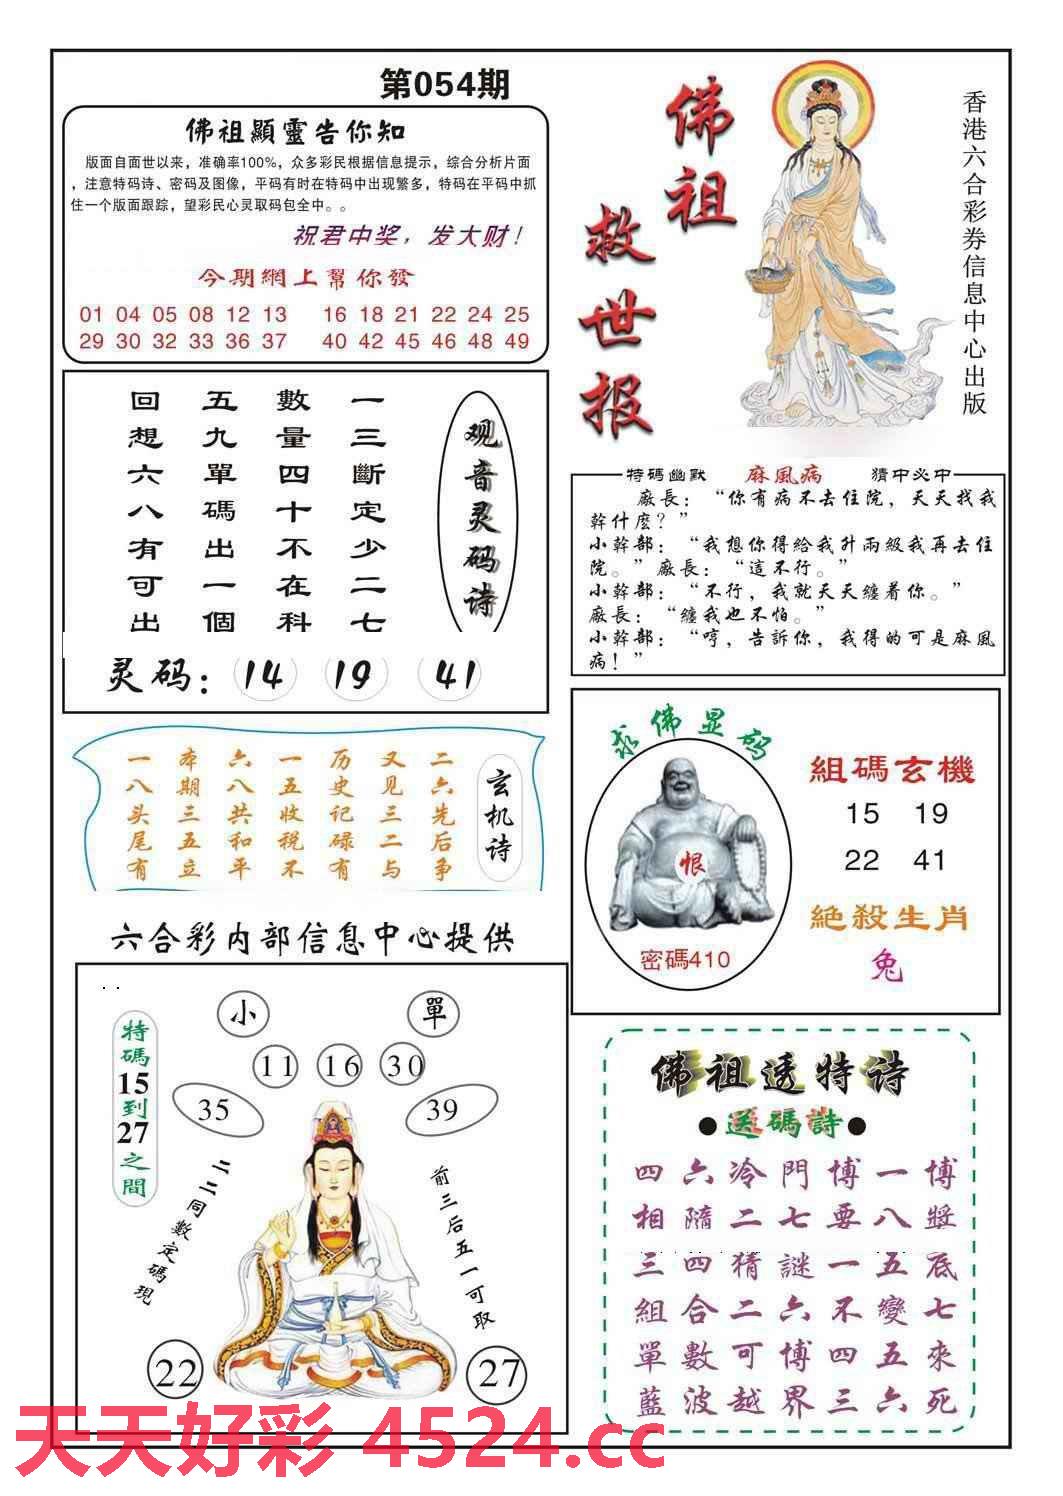 第054期
佛祖顯靈告你知
版面自面世以来，准确率100%，众多彩民根据信息提示，综合分析片面
，注意特码诗、密码及图像，平码有时在特码中出现繁多，特码在平码中抓
住一个版面跟踪，望彩民心灵取码包全中。。
祝君中奖，发大财！
今期網上幫你發
01 04 05 08 12 13 16 18 21 22 24 25
29 30 32 33 36 37 40 42 45 46 48 49
佛祖
救世报
香港六合彩券信息中心出版
观音灵码诗
一三斷定少二七
數量四十不在科
五九單碼出一個
回想六八有可出
灵码：14 19 41
特碼幽默 麻風病 猜中必中
廠長：“你有病不去住院，天天找我
幹什麽？”
小幹部：“我想你得給我升兩級我再去住
院。”廠長：“這不行。”
小幹部：“不行，我就天天纏着你。”
廠長：“纏我也不怕。”
小幹部：“哼，告訴你，我得的可是麻風
病！”
玄机诗
二六先后争
又见三二与
历史记碌有
一五收税不
六八共和平
本期三五立
一八头尾有
求佛显码
恨
密碼410
組碼玄機
15 19
22 41
絶殺生肖
兔
六合彩内部信息中心提供
特碼15到27之間
小 單
11 16 30
35 39
二二同數定碼現
前三后五一可取
22 27
佛祖透特诗
●送碼詩●
四六冷門博一博
相隨二七要八獎
三四猜謎一五底
組合二六不變七
單數可博四五來
藍波越界三六死
天天好彩 4524.cc